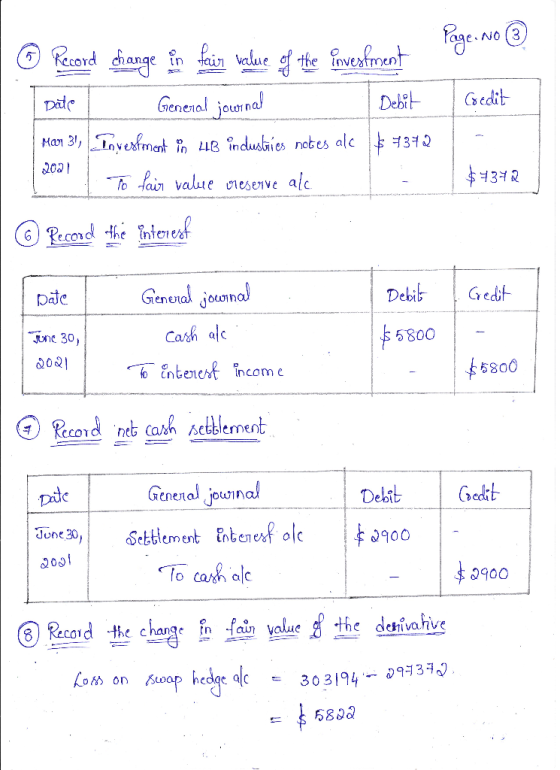 Page. No 3
5 Record change in fair value of the investment
Date General journal Debit Credit
Mar 31, Investment in LLB industries notes a/c $ 7372 -
2021
To fair value reserve a/c - $ 7372
6 Record the interest
Date General journal Debit Credit
June 30, Cash a/c $ 5800 -
2021
To interest income - $5800
7 Record net cash settlement
Date General journal Debit Credit
June 30, Settlement interest a/c $ 2900 -
2021
To cash a/c - $ 2900
8 Record the change in fair value of the derivative
Loss on swap hedge a/c = 303194 - 297372.
= $ 5822